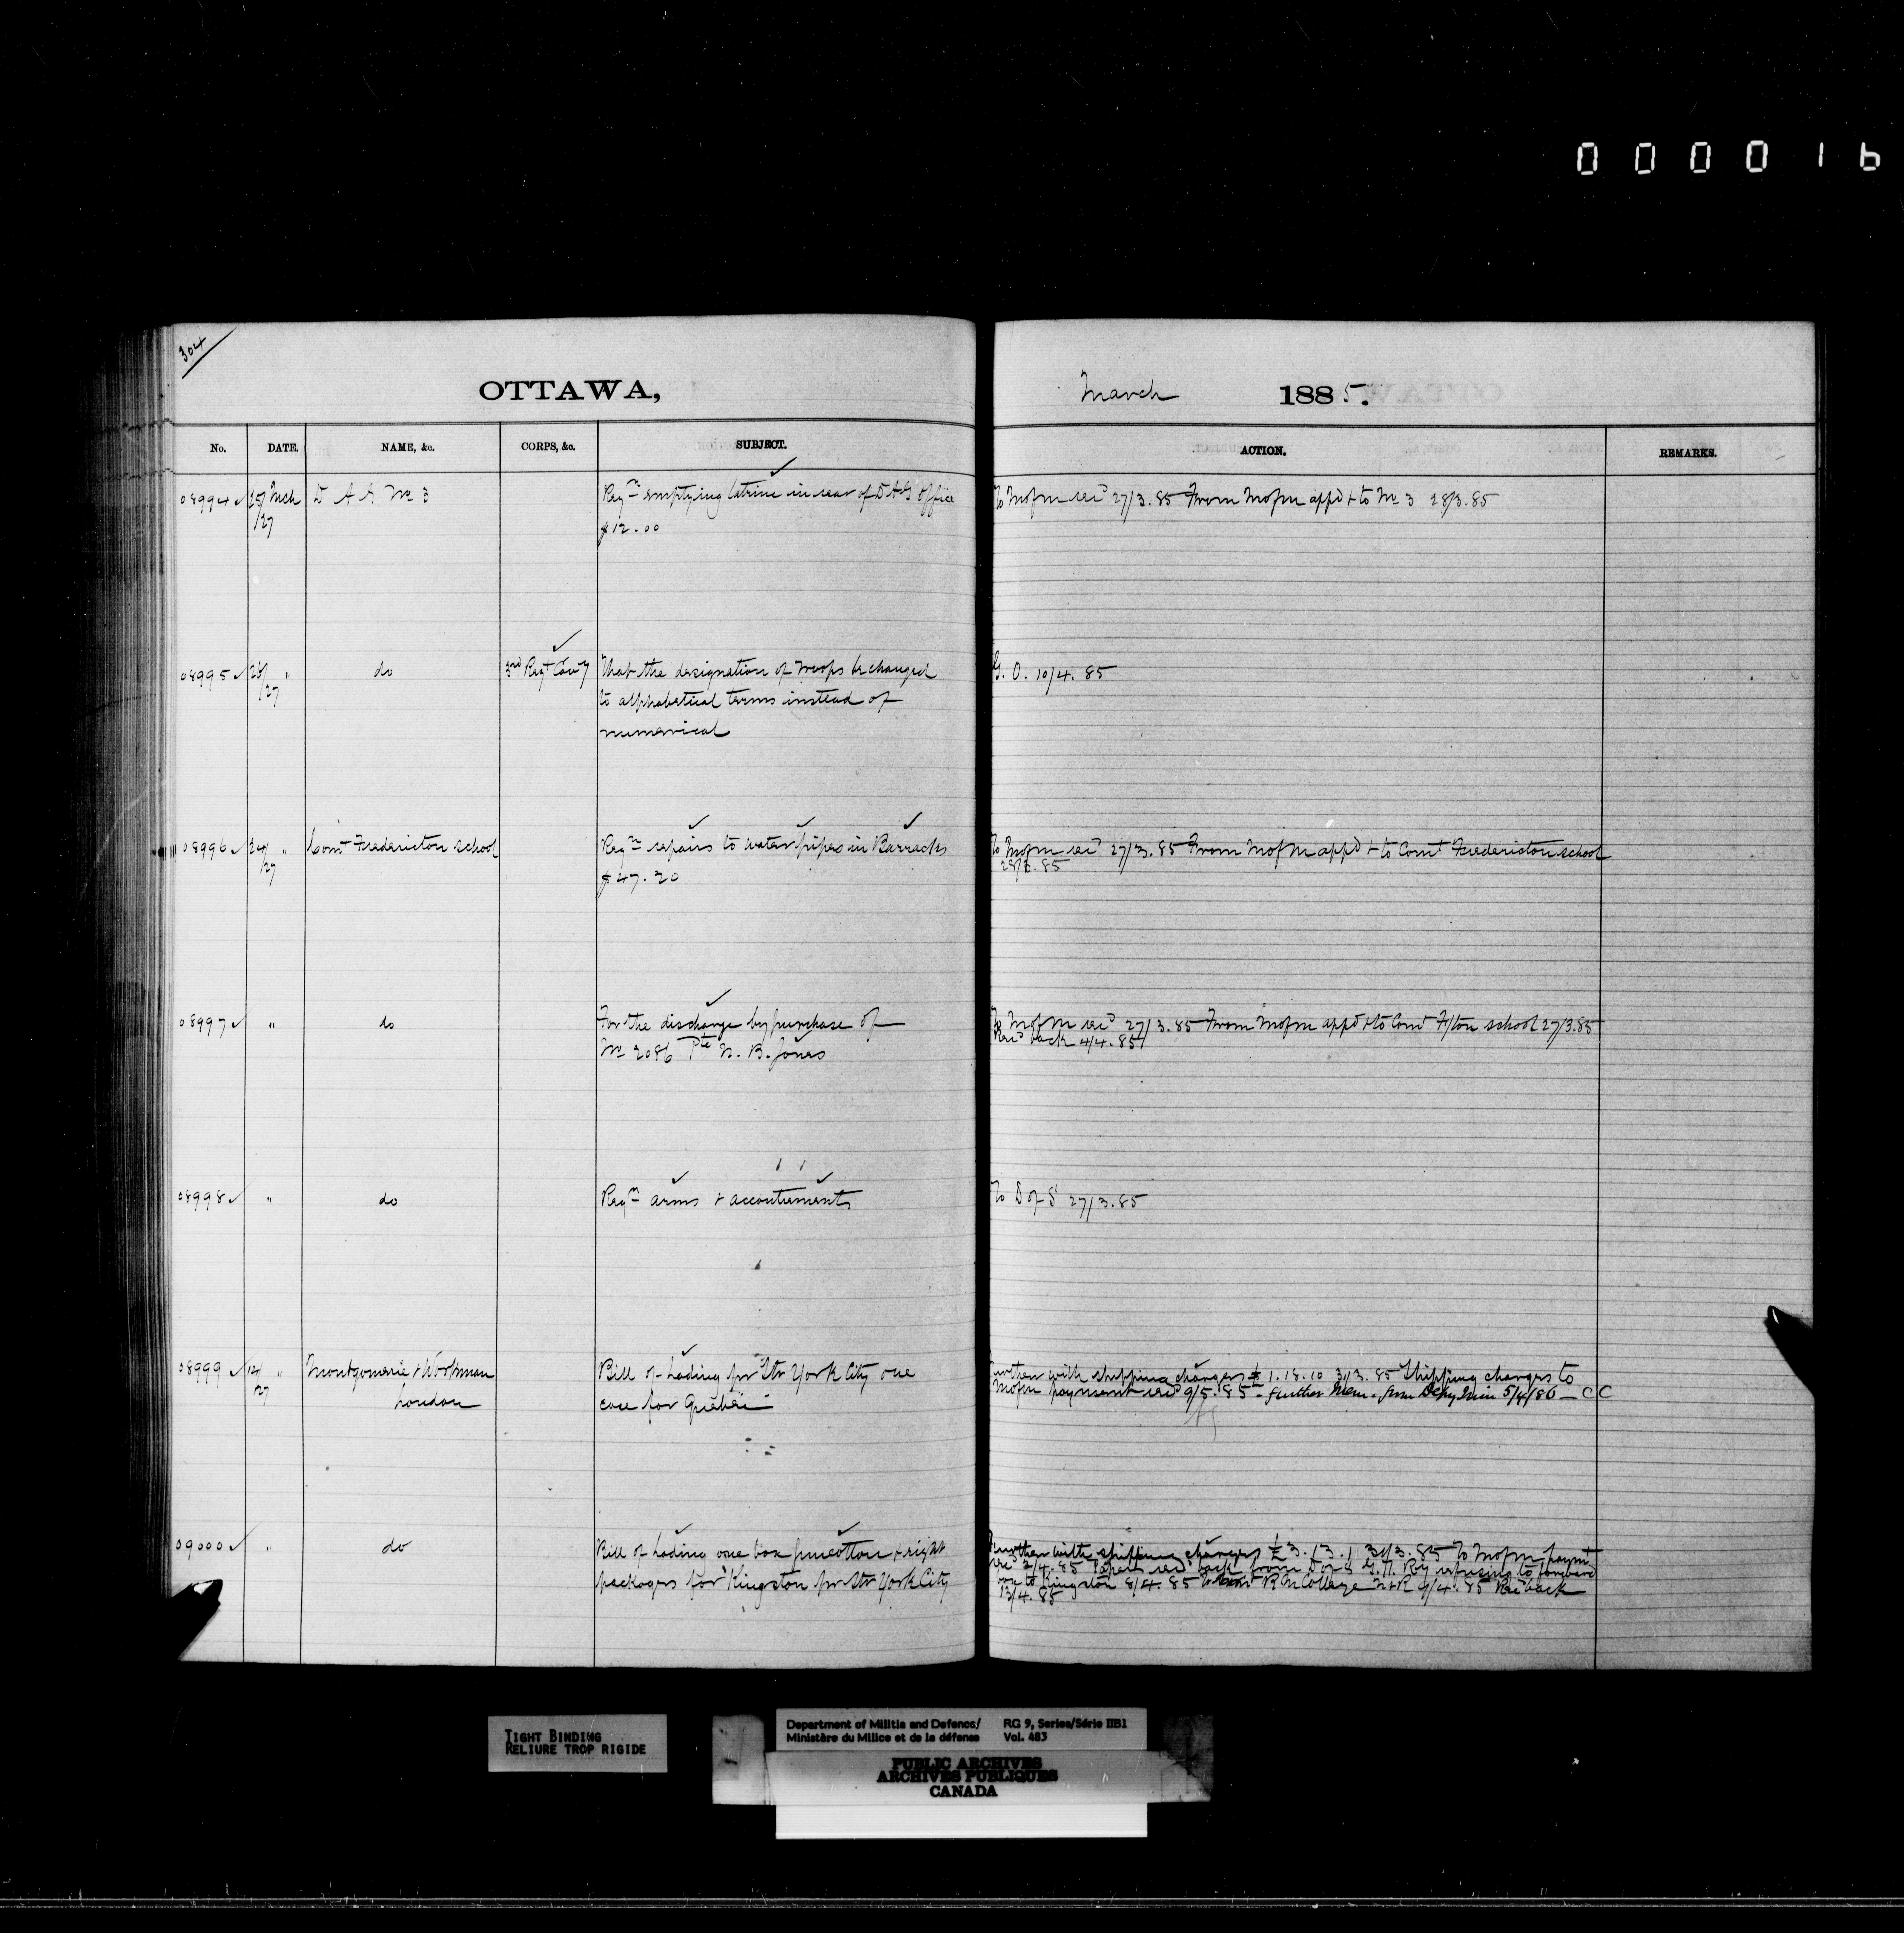 000016
304
OTTAWA,
March 1885.
No. DATE. NAME, &c. CORPS, &c. SUBJECT. ACTION. REMARKS.
08994 25/27 Mch D A G No 3 Reqn emptying latrine in rear of DAG office To M of M recd 27/3.85 From M of M appd + to No 3 28/3.85
$12.00
08995 25/27 " do 3rd Regt Cavy That the designation of Troops be changed G. O. 10/4. 85
to alphabetical terms instead of
numerical
08996 24/27 " Comt Fredericton school Reqn repairs to water pipes in Barracks To M of M recd 27/3.85 From M of M appd + to Comt Fredericton school
$47.20 28/3.85
08997 " do For the discharge by purchase of To M of M recd 27/3.85 From M of M appd + to Comt F/ton school 27/3.85
No 2086 Pte N. B. Jones Recd back 4/4.85
08998 " do Reqn arms + accoutrements To D of S 27/3.85
08999 14/27 " Montgomerie + Workman Bill of Lading pr Str York City one Further with shipping charges £1.18.10 31/3.85 Shipping charges to
London case for Quebec M of M payment recd 9/5.85 - further Mem. from Depy Min 5/4/86 - CC
09000 " do Bill of Lading one box guncotton + eight Further with shipping charges £3.13.1 31/3.85 To M of M paymt
packages for Kingston pr Str York City recd 2/4.85 Papers recd back from D of S G.T. Ry refusing to forward
one to Kingston 8/4.85 To Comt R M College N+R 9/4.85 Recd back
13/4.85
TIGHT BINDING
RELIURE TROP RIGIDE
Department of Militia and Defence/ RG 9, Series/Série IIB1
Ministère du Milice et de la défense Vol. 483
PUBLIC ARCHIVES
ARCHIVES PUBLIQUES
CANADA